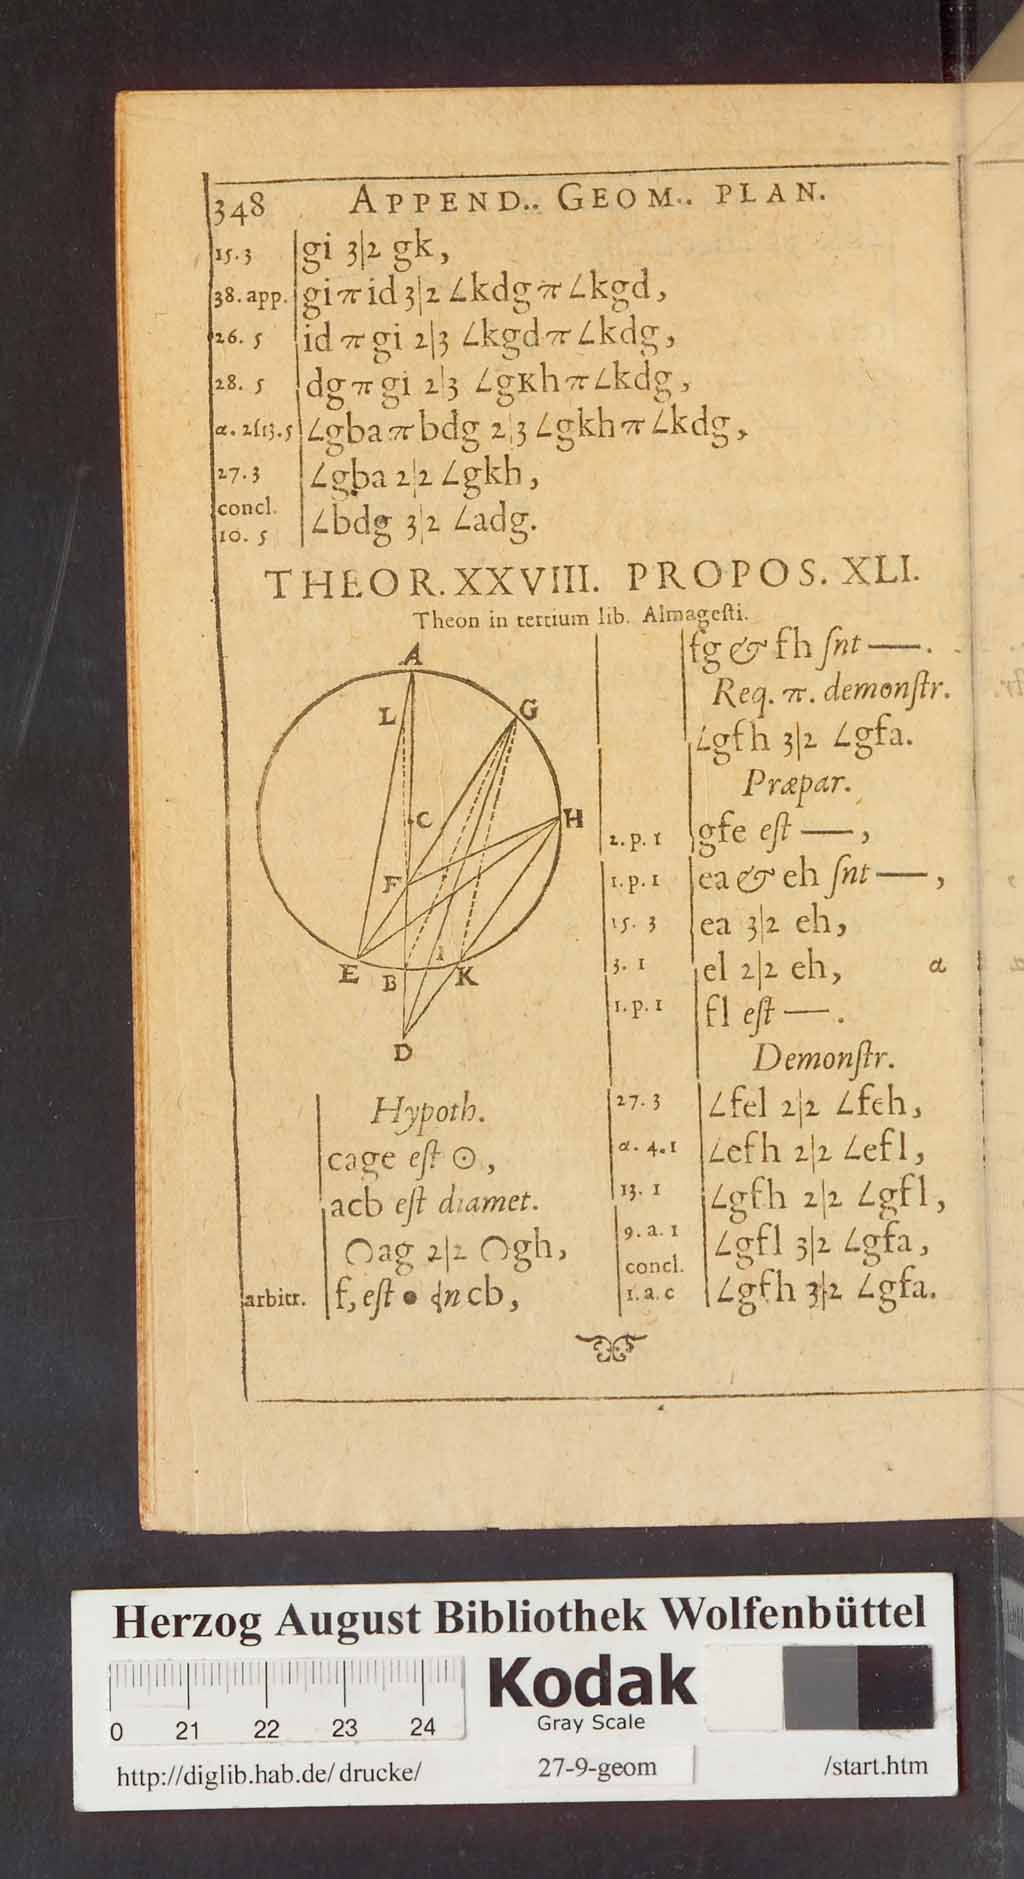 348 APPEND.. GEOM.. PLAN.
15. 3 gi 3|2 gk,
38. app. gi π id 3|2 ∠kdg π ∠kgd,
26. 5 id π gi 2|3 ∠kgd π ∠kdg,
28. 5 dg π gi 2|3 ∠gKh π ∠kdg,
α. 2ſ13. 5 ∠gba π bdg 2|3 ∠gkh π ∠kdg,
27. 3 ∠gba 2|2 ∠gkh,
concl.
10. 5 ∠bdg 3|2 ∠adg.
THEOR. XXVIII. PROPOS. XLI.
Theon in tertium lib. Almageſti.
A
L
G
C
H
F
I
E
B
K
D
Hypoth.
cage eſt ☉,
acb eſt diamet.
◠ag 2|2 ◠gh,
arbitr. f, eſt • in cb,
fg & fh ſnt —.
Req. π. demonſtr.
∠gfh 3|2 ∠gfa.
Præpar.
2. p. 1 gfe eſt —,
1. p. 1 ea & eh ſnt —,
15. 3 ea 3|2 eh,
3. 1 el 2|2 eh, α
1. p. 1 fl eſt —.
Demonſtr.
27. 3 ∠fel 2|2 ∠feh,
α. 4. 1 ∠efh 2|2 ∠efl,
13. 1 ∠gfh 2|2 ∠gfl,
9. a. 1 ∠gfl 3|2 ∠gfa,
concl.
1. a. c ∠gfh 3|2 ∠gfa.
Herzog August Bibliothek Wolfenbüttel
0 21 22 23 24
Kodak
Gray Scale
http://diglib.hab.de/drucke/ 27-9-geom /start.htm